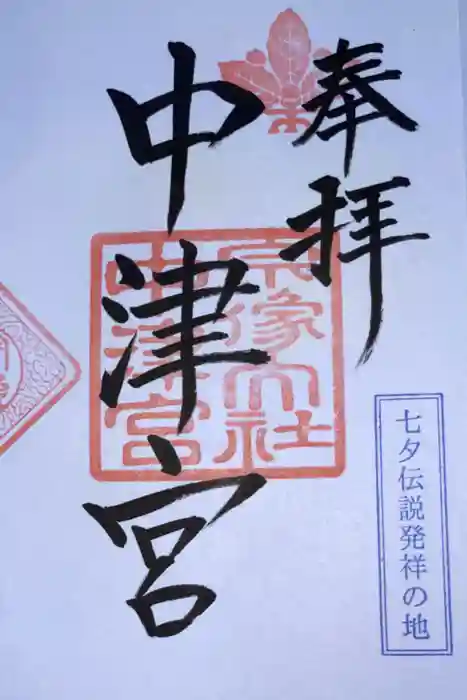 奉拝
宗像大社
中津宮
中津宮
七夕伝説発祥の地